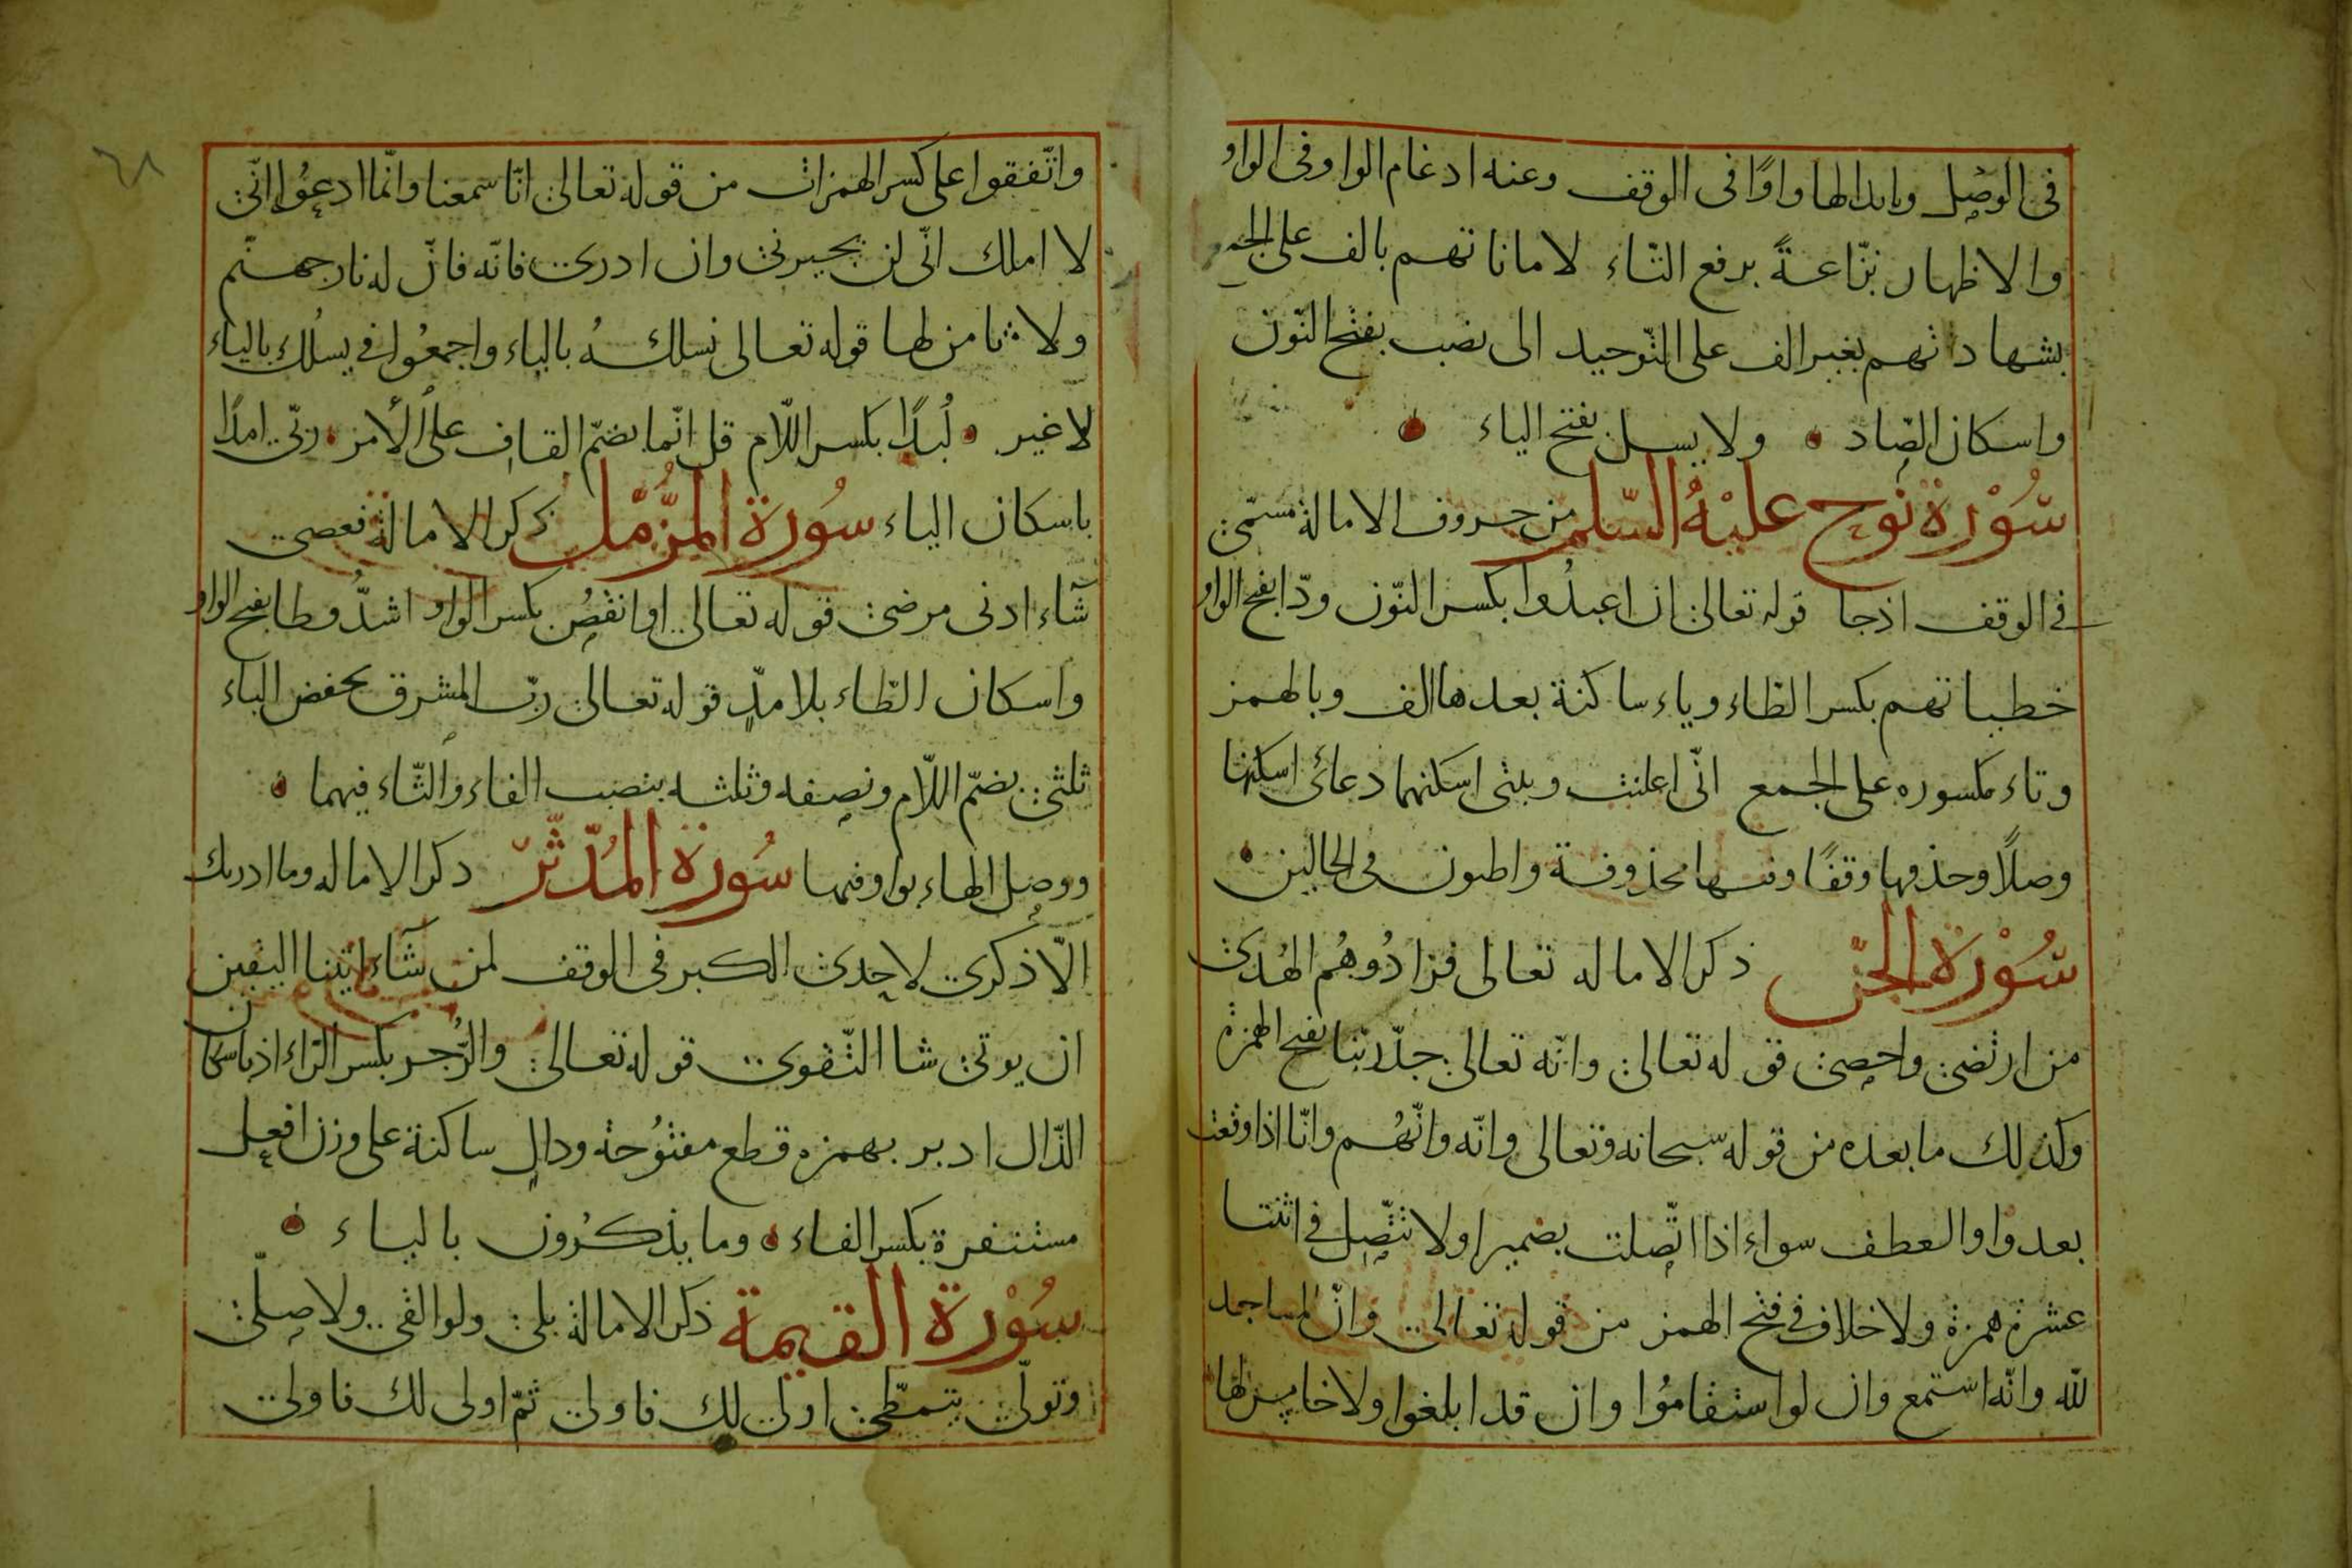 فى الوصل وابدالها واوًا فى الوقف وعنه ادغام الواو فى الواو
والاظهار نزّاعةً برفع التّاء لاماناتهم بالف على الجمع
بشهاداتهم بغير الف على التّوحيد الى نصب بفتح النّون
واسكان الصّاد ولا يسل بفتح الياء
سُوْرة نوح عليْهُ السّلم من حروف الامالة مسمّى
فى الوقف اذ جا قوله تعالى ان اعبدُوا بكسر النّون ودّا بفتح الواو
خطياتهم بكسر الطاء وياء ساكنة بعدها الف وبالهمز
وتاء مكسوره على الجمع انّى اعلنت وبيتى اسكنهما دعائى اسكنها
وصلاً وحذفها وقفًا ومنها محذوفة واطيعون فى الحالين
سُوْرة الجنّ ذكر الاماله تعالى فزادُوهُم الهُدى
من ارتضى واحصى قوله تعالى وانّه تعالى جدّ ربّنا بفتح الهمزة
وكذلك ما بعده من قوله سبحانه وتعالى وانّه وانّهُم وانّا اذا وقعت
بعد واو العطف سواء اذا اتّصلت بضمير اولا تتّصل فى اثنتا
عشرة همزة ولا خلاف فى فتح الهمز من قوله تعالى وانّ المساجد
لله وانّه استمع وان لو استقامُوا وان قد ابلغوا ولا خامس لها
واتّفقوا على كسر الهمزات من قوله تعالى انّا سمعنا وانّما ادعُوا انّى
لا املك انّى لن يجيرنى وان ادرى فانّه فانّ له نار جهنّم
ولا ثامن لها قوله تعالى نسلكهُ بالياء واجمعُوا فى يسلك بالياء
لا غير لُبدًا بكسر اللّام قل انّما بضمّ القاف على الأمر ربّى امدًا
باسكان الياء سُورة المزّمّل ذكر الامالة فعصى
شآء ادنى مرضى قوله تعالى او انقصُ بكسر الواو اشدُّ وطا بفتح الواو
واسكان الطّاء بلا مدٍّ قوله تعالى ربّ المشرق بخفض الباء
ثلثى بضمّ اللّام ونصفه وثلثه بنصب الفاء والثّاء فيهما
ووصل الهاء بواو فيهما سُورة المُدّثّر ذكر الاماله وما ادريك
الّا ذكرى لاحدى الكبر فى الوقف لمن شآء اتينا اليقين
ان يوتى شا التّقوى قوله تعالى والرّجر بكسر الرّاء اذ باسكان
الذّال ادبر بهمزه قطع مفتوُحة ودالٍ ساكنة على وزن افعل
مستنفرة بكسر الفاء وما يذكرُون بالياء
سُوْرة القيمة ذكر الامالة بلى ولو القى ولا صلّى
وتولّى يتمطّى اولى لك فاولى ثمّ اولى لك فاولى